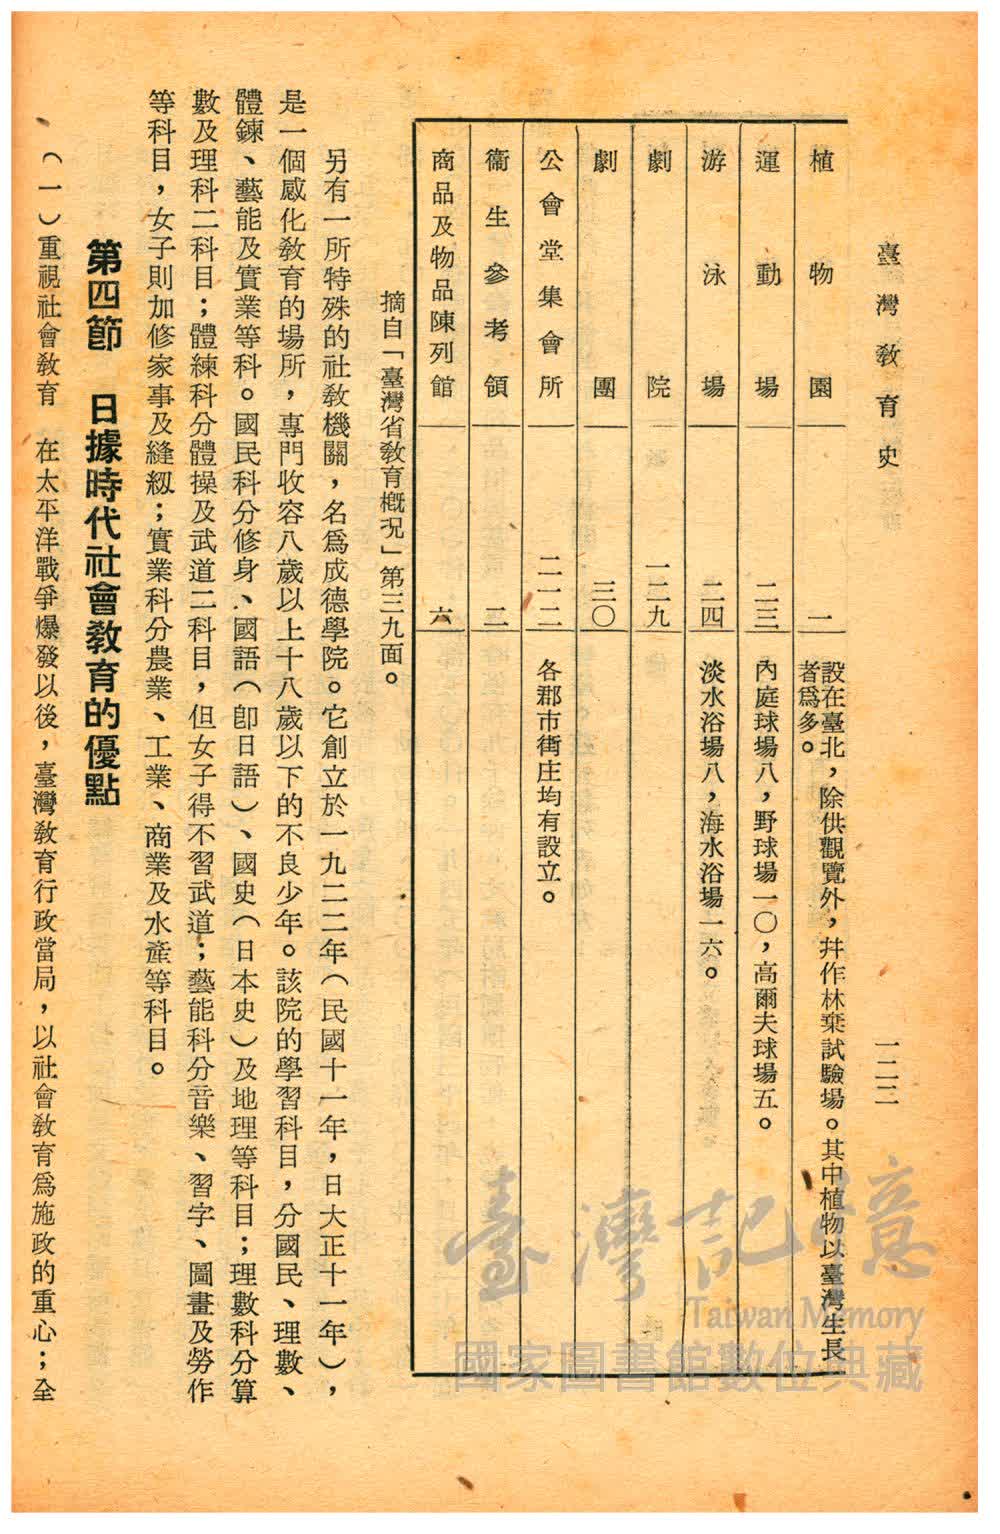 臺灣敎育史
一二二
植物園 一 設在臺北，除供觀覽外，幷作林業試驗場。其中植物以臺灣生長
者爲多。
運動場 二三 內庭球場八，野球場一〇，高爾夫球場五。
游泳場 二四 淡水浴場八，海水浴場一六。
劇院 一二九
劇團 三〇
公會堂集會所 二一二 各郡市街庄均有設立。
衞生參考領 二
商品及物品陳列館 六
摘自「臺灣省敎育槪況」第三九面。
另有一所特殊的社敎機關，名爲成德學院。它創立於一九二二年（民國十一年，日大正十一年），
是一個感化敎育的場所，專門收容八歲以上十八歲以下的不良少年。該院的學習科目，分國民、理數、
體鍊、藝能及實業等科。國民科分修身、國語（卽日語）、國史（日本史）及地理等科目；理數科分算
數及理科二科目；體練科分體操及武道二科目，但女子得不習武道；藝能科分音樂、習字、圖畫及勞作
等科目，女子則加修家事及縫紉；實業科分農業、工業、商業及水產等科目。
第四節 日據時代社會敎育的優點
（一）重視社會敎育 在太平洋戰爭爆發以後，臺灣敎育行政當局，以社會敎育爲施政的重心；全
臺灣記憶
Taiwan Memory
國家圖書館數位典藏